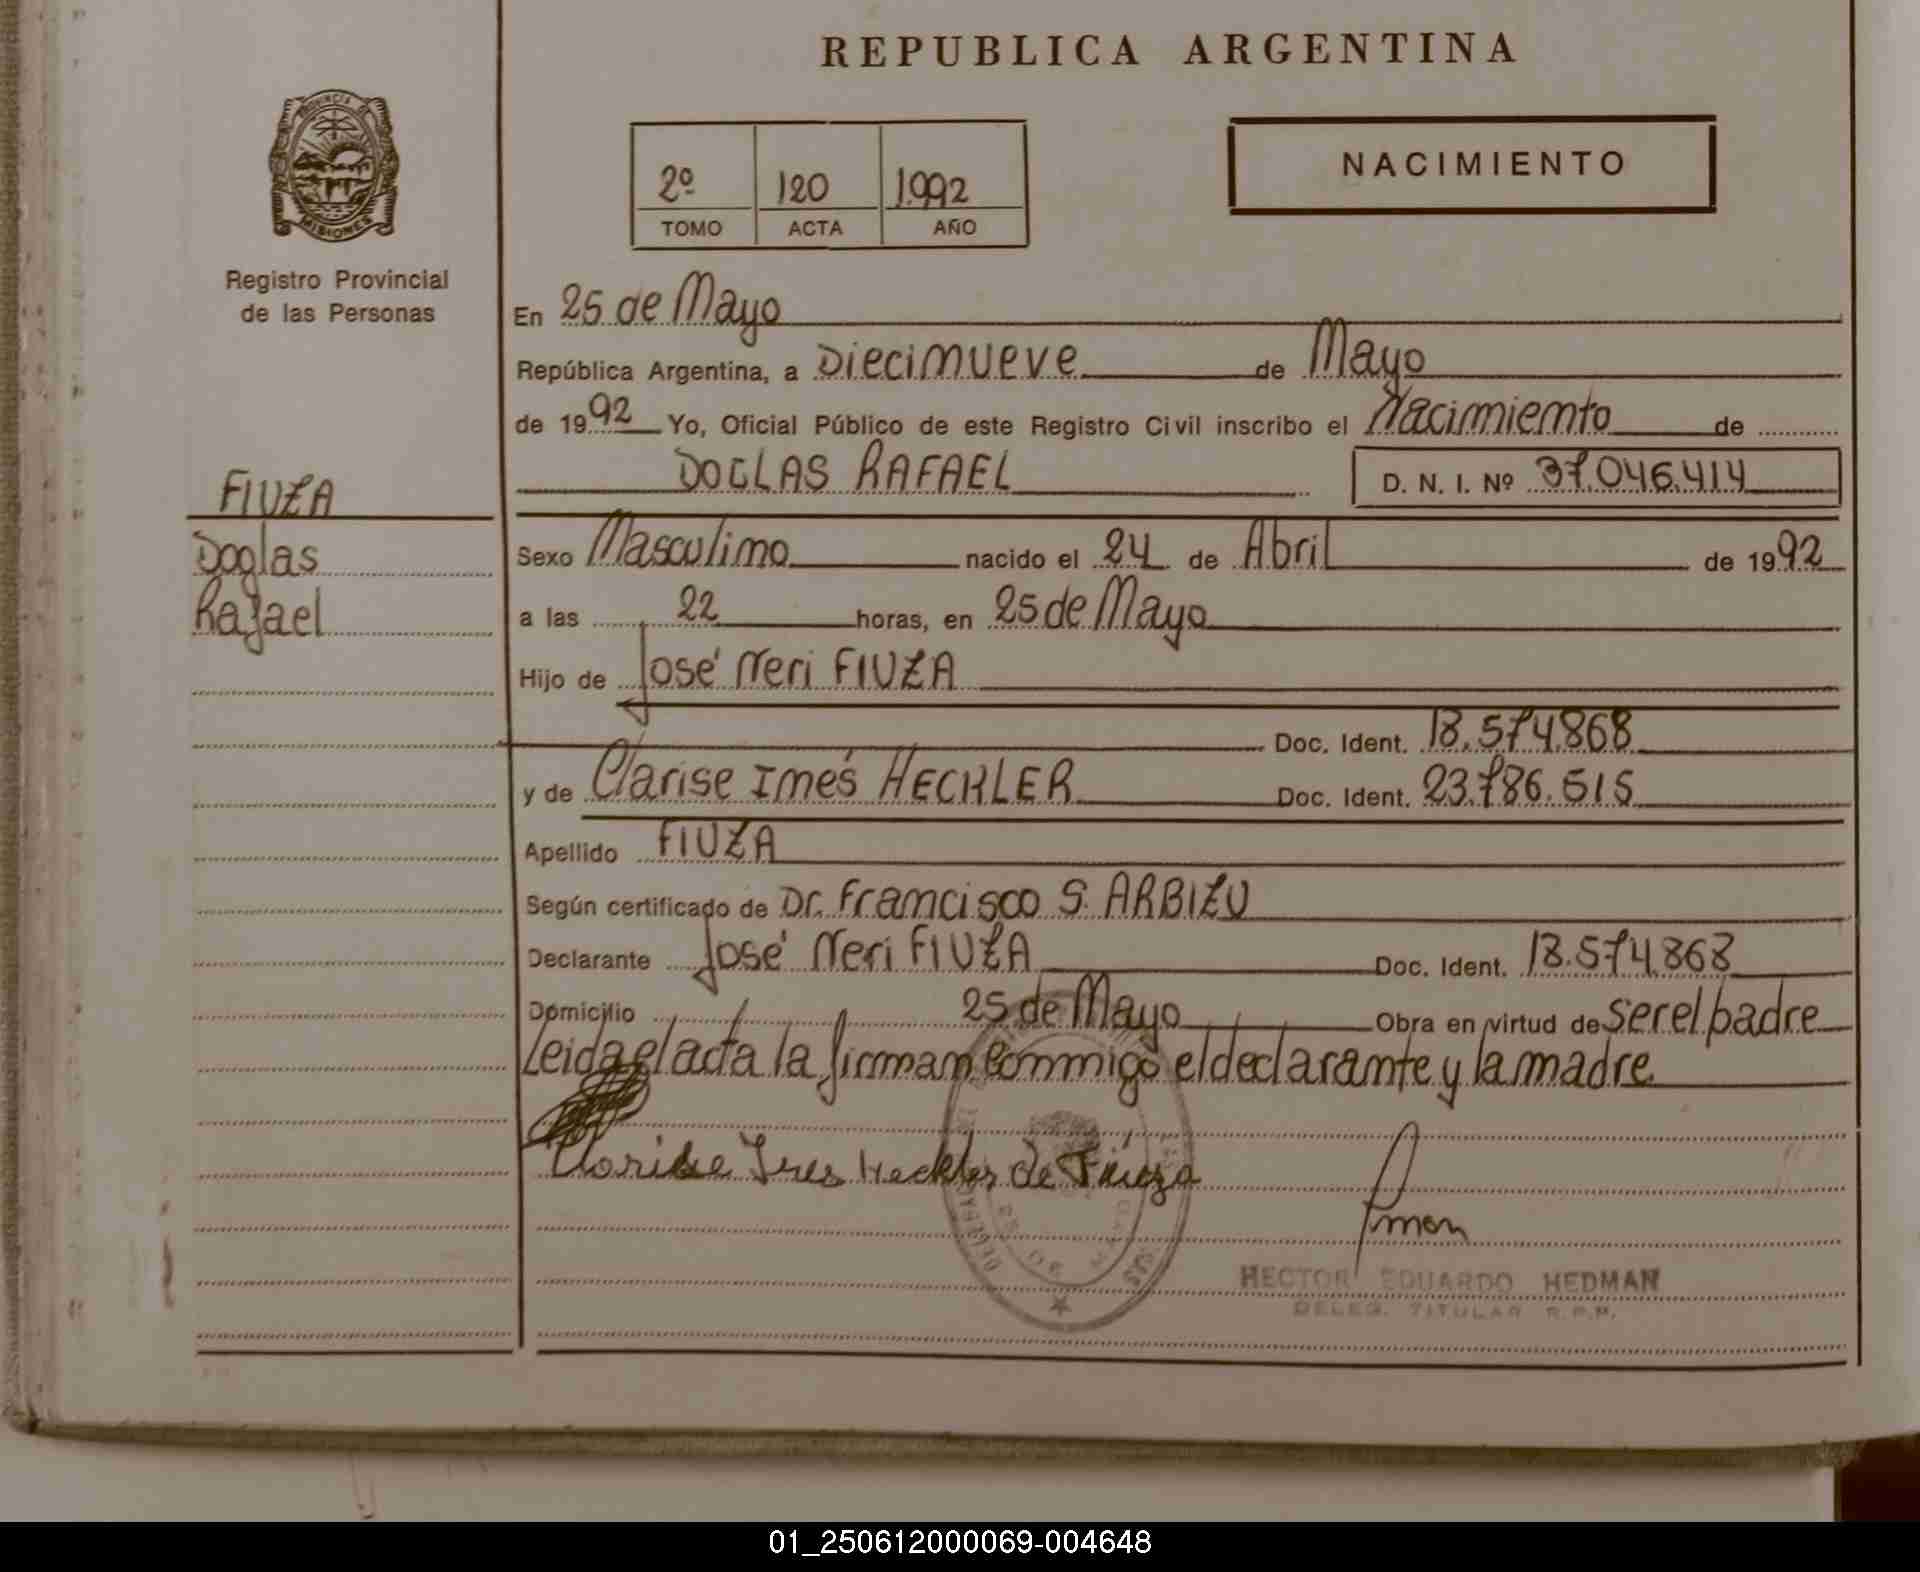 REPUBLICA ARGENTINA
PROVINCIA DE
MISIONES
Registro Provincial
de las Personas
2º 120 1.992
TOMO ACTA AÑO
NACIMIENTO
En 25 de Mayo
República Argentina, a Diecinueve de Mayo
de 1992 Yo, Oficial Público de este Registro Civil inscribo el Nacimiento de
DOGLAS RAFAEL D. N. I. Nº 37.046.414
FIUZA
Doglas
Rafael
Sexo Masculino nacido el 24 de Abril de 1992
a las 22 horas, en 25 de Mayo
Hijo de José Neri FIUZA
Doc. Ident. 18.574.868
y de Clarise Inés HECKLER Doc. Ident. 23.786.515
Apellido FIUZA
Según certificado de Dr. Francisco S. ARBIZU
Declarante José Neri FIUZA Doc. Ident. 18.574.868
Domicilio 25 de Mayo Obra en virtud de ser el padre
Leida el acta la firman conmigo el declarante y la madre
Clarise Ines Heckler de Fiuza
HECTOR EDUARDO HEDMAN
DELEG. TITULAR R.P.P.
01_250612000069-004648